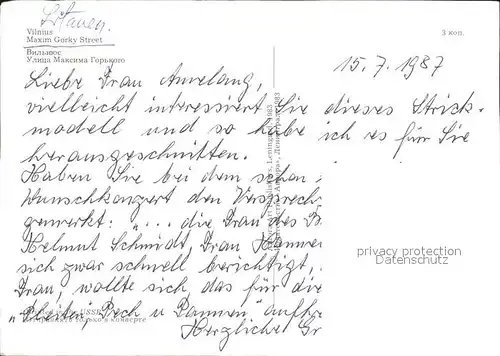 Litauen.
Vilnius
Maxim Gorky Street
Вильнюс
Улица Максима Горького
3 коп.
15.7.1987
Liebe Frau Amelang,
vielleicht interessiert Sie dieses Strick-
modell und so habe ich es für Sie
herausgeschnitten.
Haben Sie bei dem schon
Wunschkonzert den Versprech
gemerkt: "... die Frau des B
Helmut Schmidt, Frau Hannem
sich zwar schnell berichtigt,
Frau, wollte sich das für die
"Pleiten Pech u Pannen" aufh
Herzliche Gr
privacy protection
www.ansichtskartenversand.com